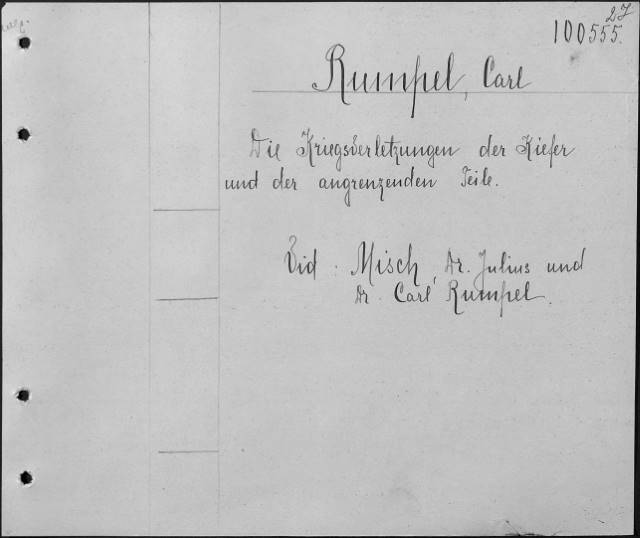 27
100555.
Rumpel, Carl
Die Kriegsverletzungen der Kiefer
und der angrenzenden Teile.
Vid. Misch, Dr. Julius und
Dr. Carl Rumpel.